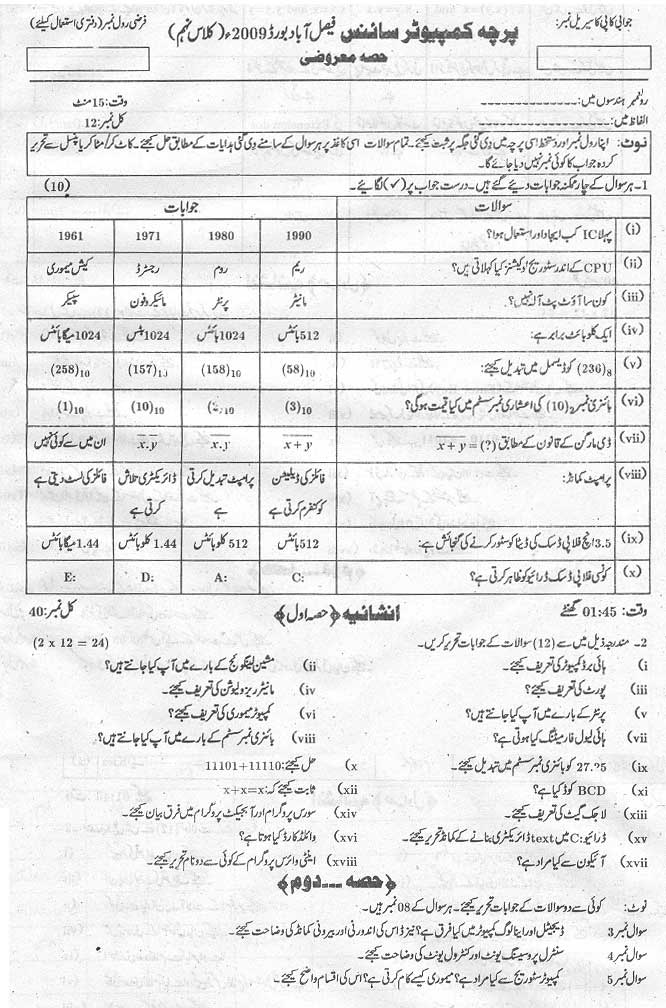 جوابی کاپی کا سیریل نمبر: پرچہ کمپیوٹر سائنس فیصل آباد بورڈ 2009ء (کلاس نہم) فرضی رول نمبر (دفتری استعمال کیلئے)
حصہ معروضی
رولنمبر ہندسوں میں: وقت: 15 منٹ
الفاظ میں: کل نمبر: 12
نوٹ: اپنا رول نمبر اور دستخط اسی پرچہ میں دی گئی جگہ پر ثبت کیجئے۔ تمام سوالات اسی کاغذ پر ہر سوال کے سامنے دی گئی ہدایات کے مطابق حل کیجئے۔ کاٹ کر/مٹا کر یا پنسل سے تحریر
کردہ جواب کا کوئی نمبر نہیں دیا جائے گا۔
1۔ ہر سوال کے چار ممکنہ جوابات دیئے گئے ہیں۔ درست جواب پر (✓) لگائیے۔ (10)
سوالات جوابات
(i) پہلا IC کب ایجاد اور استعمال ہوا؟ 1990 1980 1971 1961
(ii) CPU کے اندر سٹوریج لوکیشنز کیا کہلاتی ہیں؟ ریم روم رجسٹرڈ کیش میموری
(iii) کون سا آؤٹ پٹ آلہ نہیں؟ مانیٹر پرنٹر مائیکروفون سپیکر
(iv) ایک کلو بائٹ برابر ہے: 512 بائٹس 1024 بائٹس 1024 بٹس 1024 میگا بائٹس
(v) (236)₈ کو ڈیسمل میں تبدیل کیجئے: (58)₁₀ (158)₁₀ (157)₁₀ (258)₁₀
(vi) بائنری نمبر (10)₂ کی اعشاری نمبر سسٹم میں کیا قیمت ہوگی؟ (3)₁₀ (2)₁₀ (10)₁₀ (1)₁₀
(vii) ڈی مارگن کے قانون کے مطابق (?) = x + y x + y x.y x.y ان میں سے کوئی نہیں
(viii) پرامپٹ کمانڈ: فائلز کی ڈیلیشن کو کنفرم کرتی ہے پرامپٹ تبدیل کرتی ہے ڈائریکٹری تلاش کرتی ہے فائلز کی لسٹ دیتی ہے
(ix) 3.5 انچ فلاپی ڈسک کی ڈیٹا کو سٹور کرنے کی گنجائش ہے: 512 بائٹس 512 کلو بائٹس 1.44 کلو بائٹس 1.44 میگا بائٹس
(x) کونسی فلاپی ڈسک ڈرائیو کو ظاہر کرتی ہے؟ C: A: D: E:
وقت: 01:45 گھنٹے انشائیہ (حصہ اول) کل نمبر: 40
2۔ مندرجہ ذیل میں سے (12) سوالات کے جوابات تحریر کریں۔ (2 x 12 = 24)
(i) ہائی برڈ کمپیوٹر کی تعریف کیجئے۔ (ii) مشین لینگوئج کے بارے میں آپ کیا جانتے ہیں؟
(iii) پورٹ کی تعریف کیجئے؟ (iv) مانیٹر ریزولیوشن کی تعریف کیجئے۔
(v) پرنٹر کے بارے میں آپ کیا جانتے ہیں؟ (vi) کمپیوٹر میموری کی تعریف کیجئے؟
(vii) ہائی لیول فارمیٹنگ کیا ہوتی ہے؟ (viii) بائنری نمبر سسٹم کے بارے میں آپ کیا جانتے ہیں؟
(ix) 27.25 کو بائنری نمبر سسٹم میں تبدیل کیجئے۔ (x) حل کیجئے: 11101+11110
(xi) BCD کوڈ کیا ہے؟ (xii) ثابت کیجئے کہ: x+x=x
(xiii) لاجک گیٹ کی تعریف کیجئے۔ (xiv) سورس پروگرام اور آبجیکٹ پروگرام میں فرق بیان کیجئے۔
(xv) ڈرائیو C: میں text ڈائریکٹری بنانے کے کمانڈ تحریر کیجئے۔ (xvi) وائلڈ کارڈ کیا ہوتا ہے؟
(xvii) آئیکون سے کیا مراد ہے؟ (xviii) اینٹی وائرس پروگرام کے کوئی سے دو نام تحریر کیجئے۔
(حصہ ــ دوم)
نوٹ: کوئی سے دو سوالات کے جوابات تحریر کیجئے۔ ہر سوال کے 08 نمبر ہیں۔
سوال نمبر 3 ڈیجیٹل اور اینالوگ کمپیوٹر میں کیا فرق ہے؟ نیز ڈاس کی اندرونی اور بیرونی کمانڈ کی وضاحت کیجئے۔
سوال نمبر 4 سنٹرل پروسیسنگ یونٹ اور کنٹرول یونٹ کی وضاحت کیجئے۔
سوال نمبر 5 کمپیوٹر سٹوریج سے کیا مراد ہے؟ میموری کیسے کام کرتی ہے؟ اس کی اقسام واضح کیجئے۔